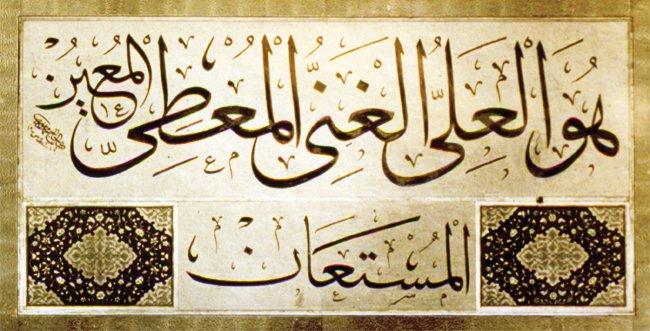 هُوَ الْعَلِيُّ الْغَنِيُّ الْمُعْطِي الْمُعِينُ
الْمُسْتَعَانُ